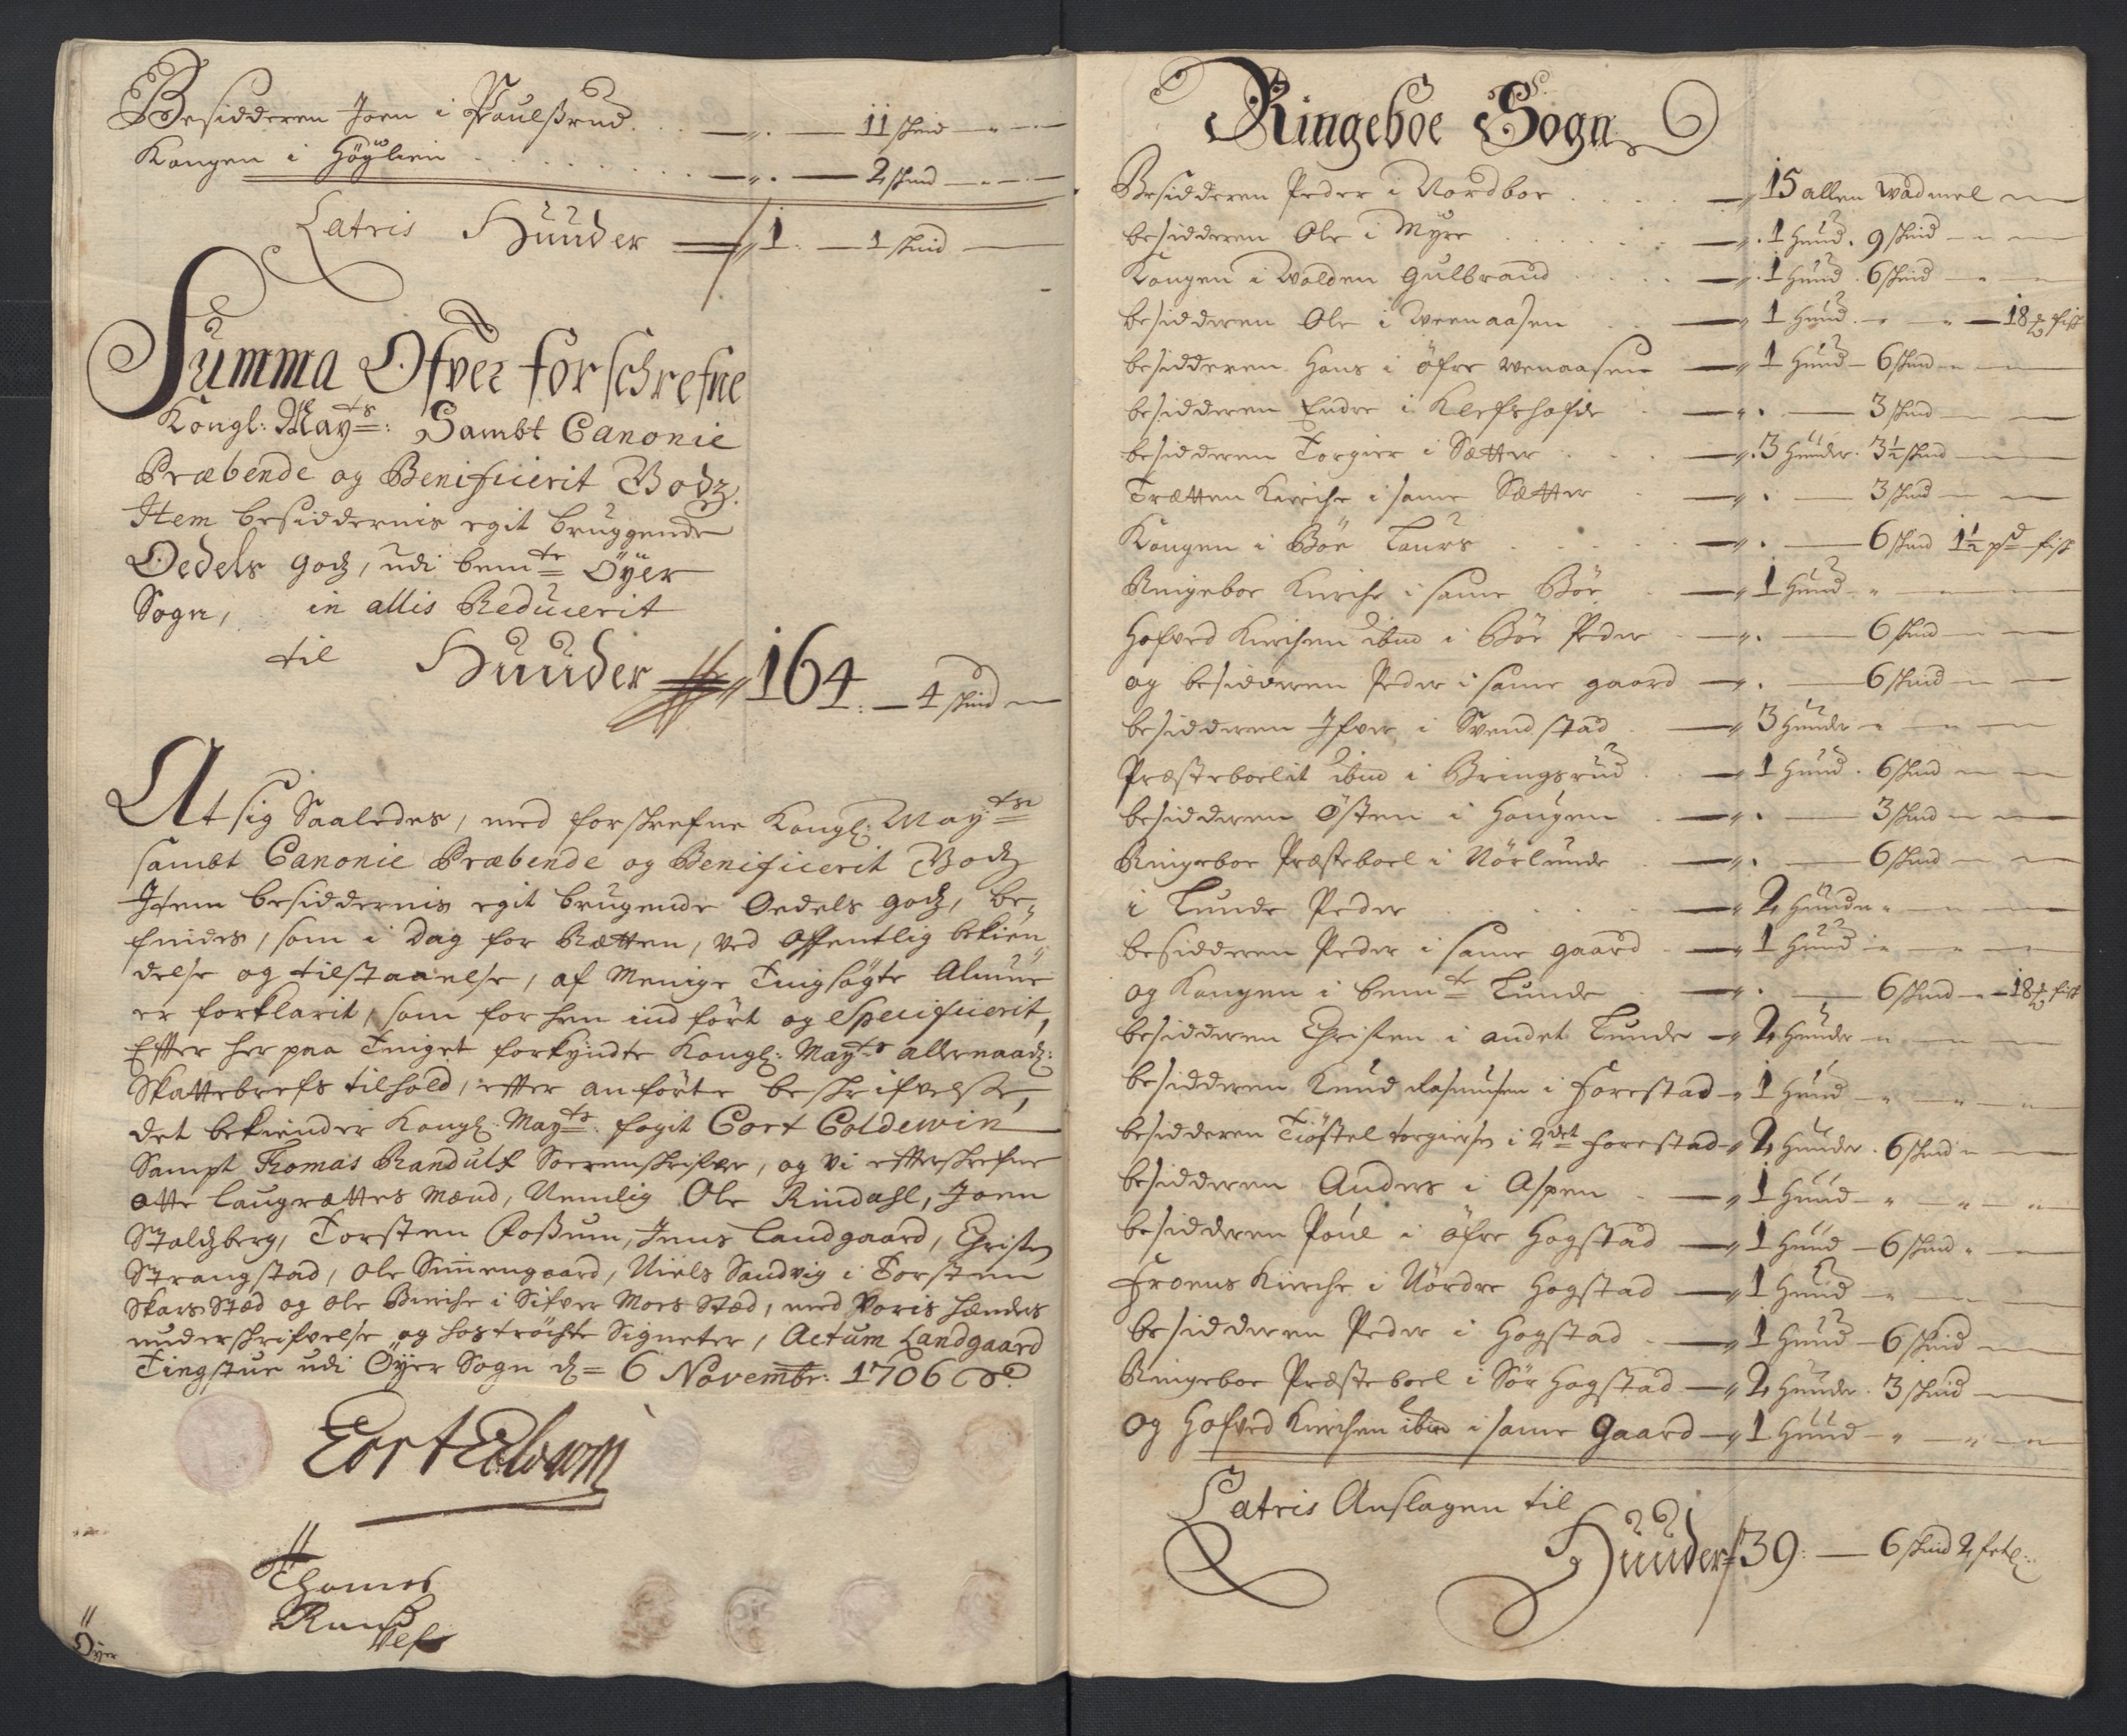 Besidderen Joen i Paulsrud . . . — „ . — 11 skind — „ — „ —
Kongen i Höÿlien . . . . . — „ . — 2 skind — „ — „ —
Latris Huuder — „ 1 : — 1 skind —
Summa Ofver forschrefne
Kongl: Maÿts: Sambt Canonie
Præbende og Benificierit Godz.
Item besiddernis egit bruggende
Oedels godz, udi bemte Öÿer
Sogn, in allis Reducierit
til Huuder — „ 164 : — 4 skind —
At sig Saaledes, med forskrefne Kongl: Maÿts
sambt Canonie Præbende og Benificierit Godz
Item besiddernis egit brugende Oedels godz, be,,
findes, som i Dag for Retten, ved Offentlig bekien,,
delse og tilstaaelse, af Menige Tingsögte Almue
er forklarit, som for hen ind fört og Specificierit,
Efter her paa Tinget forkyndte Kongl: Mayts allernaadz:
Skattebrefs tilhold, efter anförte beskrifvelse,
det bekiender Kongl: Mayts: fogit Cort Coldewin
Sampt Thomas Randulf Sorenskrifver, og vi efterskrefne
otte laugrættes Mænd, Nemlig Ole Rindahl, Joen
Stalsberg, Torsten Fossum, Jens Landgaard, Christen
Strangstad, Ole Simengaard, Niels Sandvig i Torsten
Skars Stæd og Ole Kierche i Sifver Moes Stæd, med Voris hænders
underskrifvelse og hoströchte Signeter, Actum Landgaard
Tingstue udi Öyer Sogn d= 6 Novembr: 1706
Cort Coldewin
Thomes
Randulf
Öyer
Ringeboe Sogn
Besidderen Peder i Nordboe . . . . — „ 15 allen wadmel —
besidderen Ole i Myre . . . . — „ . 1 huud . 9 skind — „ —
Kongen i Volden Gulbrand . . . — „ . 1 huud . 6 skind — „ —
besidderen Ole i Venaasen . . — „ 1 huud . — „ — 18 ℔ fisk
besidderen Hans i öfre Venaasen — „ 1 huud — 6 skind — „ —
besidderen Endre i Klefshofde . — „ . — 3 skind — „ —
besidderen Torgier i Sætter . . . — „ . 3 huuder . 3½ skind — „ —
Trætten Kierche i same Sætter . — „ . — 3 skind — „ —
Kongen i Böe Laurs . . . . — „ . — 6 skind 1½ psd fisk
Ringeboe Kierche i same Böe . — „ 1 huud — „ —
Hofved Kierchen ibm i Böe Peder . — „ . — 6 skind — „ —
og besidderen Peder i same gaard — „ . — 6 skind — „ —
besidderen Ifver i Svendstad . — „ 3 huuder — „ —
Præsteboelit ibm i Bringsrud . . — „ 1 huud . 6 skind — „ —
besidderen Östen i Hougen . — „ . — 3 skind — „ —
Ringeboe Præsteboel i Nörlunde . — „ . — 6 skind — „ —
i Lunde Peder . . . . . — „ 2 huuder „ —
besidderen Peder i same gaard . — „ 1 huud — „ —
og Kongen i bemte Lunde . — „ . — 6 skind — „ 18 ℔ fisk
besidderen Christen i andet Lunde — „ 2 huuder — „ —
besidderen Knud Rasmusen i Forestad — „ 1 huud — „ —
besidderen Tiöstel torgiersen i 2det forestad — „ 2 huuder . 6 skind „ —
besidderen Anders i Aspen . — „ 1 huud — „ —
besidderen Poul i öfre Hogstad — „ 1 huud — 6 skind „ —
Froens Kierche i Nördre Hogstad — „ 1 huud — „ —
besidderen Peder i Hogstad . — „ 1 huud — 6 skind —
Ringeboe Præsteboel i Sör Hogstad — „ 2 huuder . 3 skind —
og Hofved Kierchen ibm i same Gaard — „ 1 huud — „ —
Latris Anslagen til
Huuder 39 : — 6 skind 2 fetl: